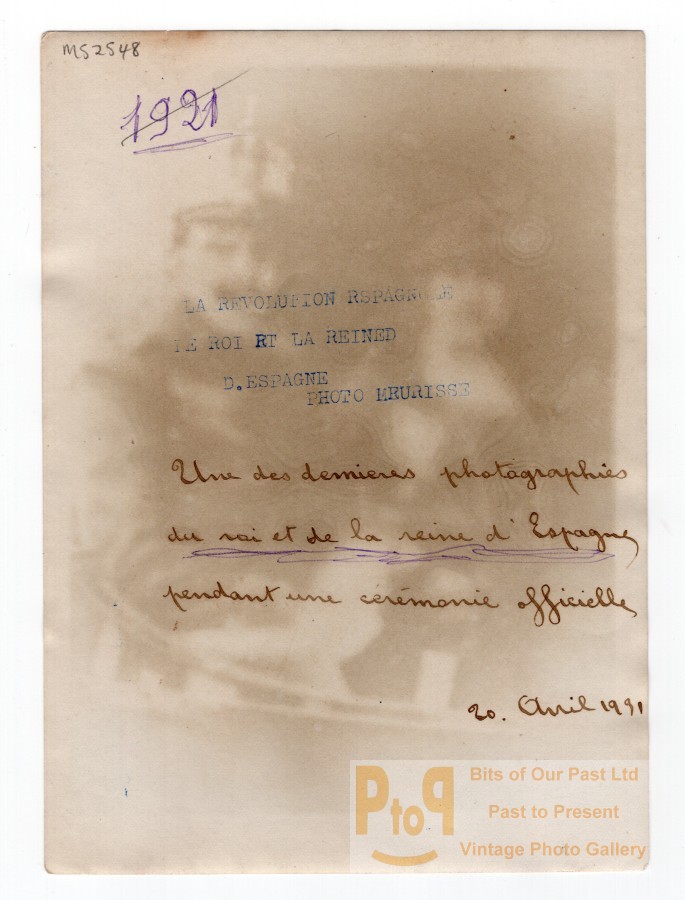 MS2548
1921
LA REVOLUTION RSPAGNOLE
LE ROI RT LA REINED
D.ESPAGNE
PHOTO MEURISSE
Une des dernieres photographies
du roi et de la reine d'Espagne
pendant une cérémonie officielle
20. Avril 1931
PtoP
Bits of Our Past Ltd
Past to Present
Vintage Photo Gallery